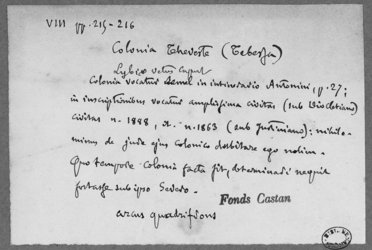 VIII pp. 215-216
Colonia Theveste (Tebessa)
Lybiæ vetus caput
Colonia vocatur semel in itinerario Antonini, p. 27;
in inscriptionibus vocatur amplissima civitas (sub Diocletiano)
civitas n. 1888, et n. 1863 (sub Justiniano): nihilo-
minus de jure ejus colonico dubitare ego nolim.
Quo tempore colonia facta sit, determinari nequit
fortasse sub ipso Severo.
Fonds Castan
arcus quadrifrons